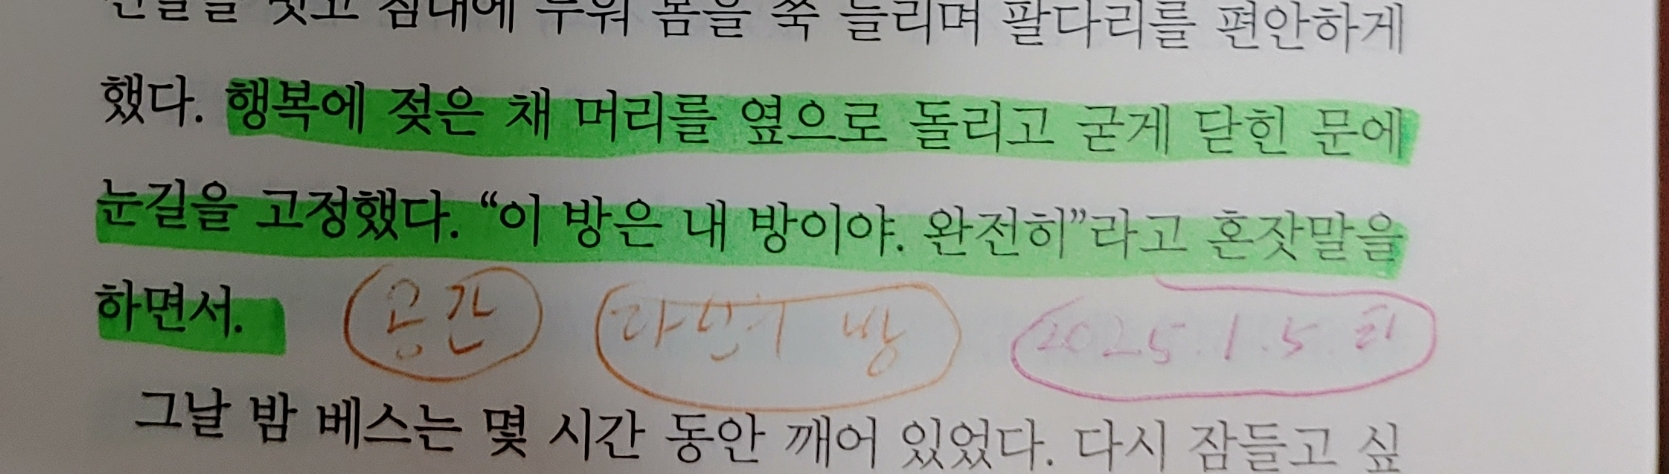 침대에 누워 몸을 쭉 늘리며 팔다리를 편안하게
했다. 행복에 젖은 채 머리를 옆으로 돌리고 굳게 닫힌 문에
눈길을 고정했다. “이 방은 내 방이야. 완전히”라고 혼잣말을
하면서.
공간
방
2025.1.5
그날 밤 베스는 몇 시간 동안 깨어 있었다. 다시 잠들고 싶